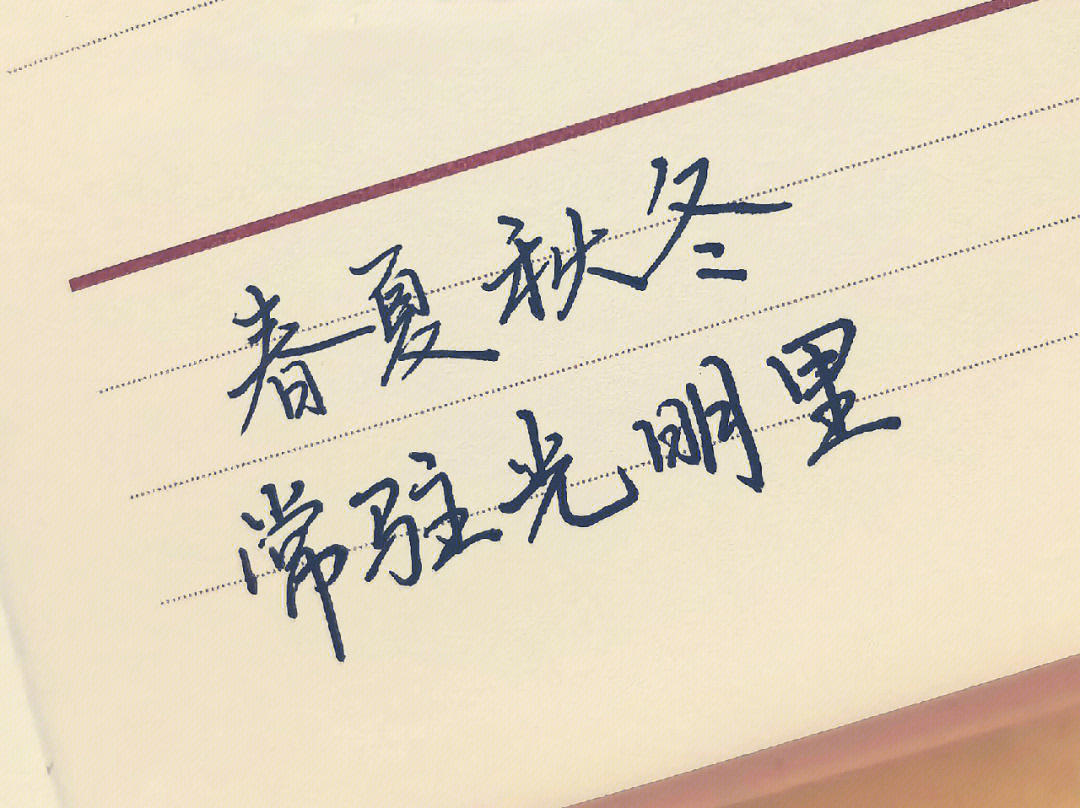 春夏秋冬
常驻光明里